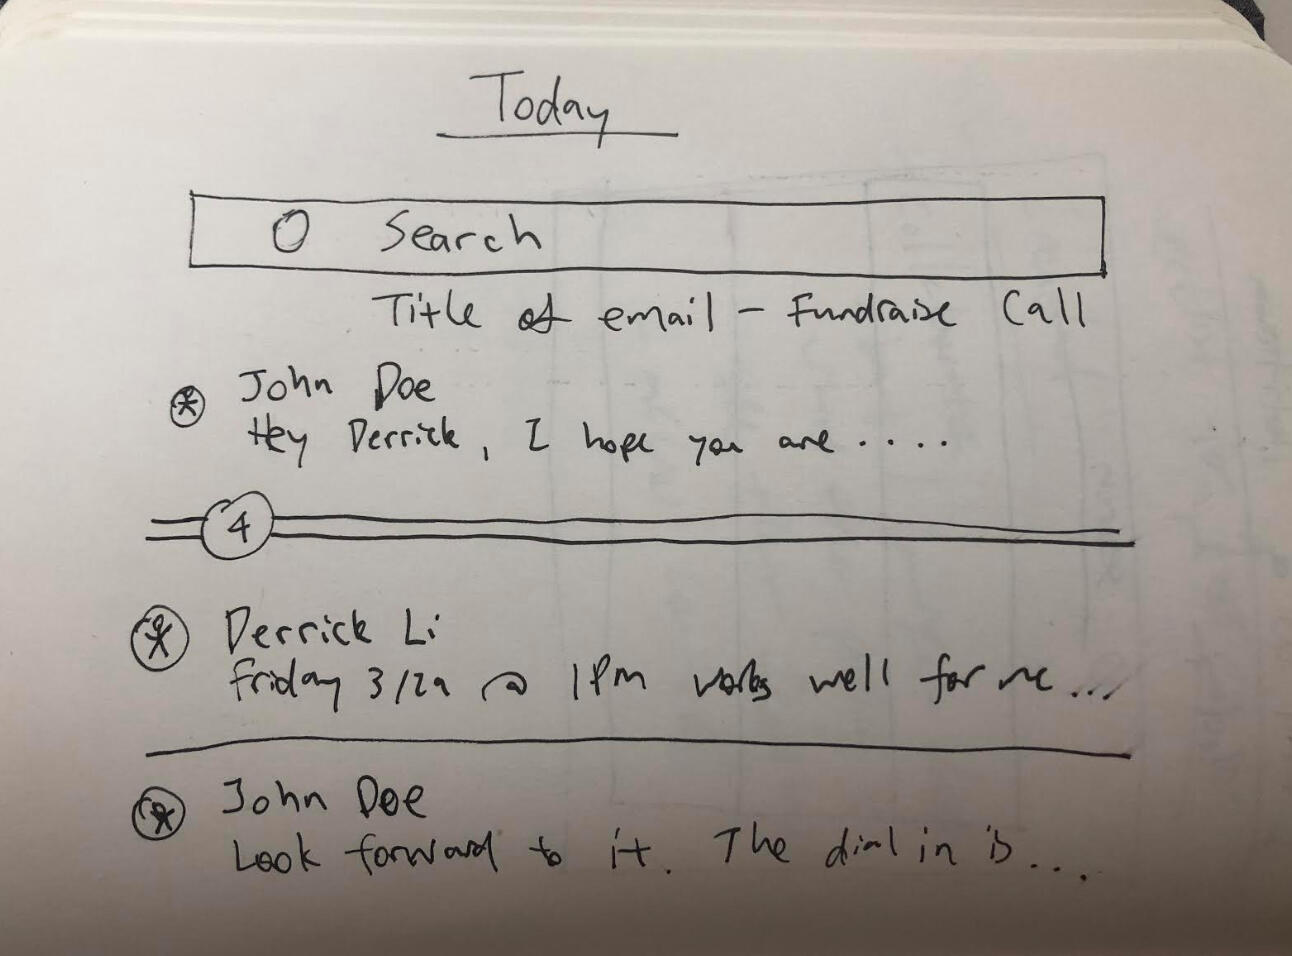 Today
Search
Title of email - Fundraise Call
John Doe
Hey Derrick, I hope you are ....
4
Derrick Li
Friday 3/29 @ 1PM works well for me...
John Doe
Look forward to it. The dial in is....